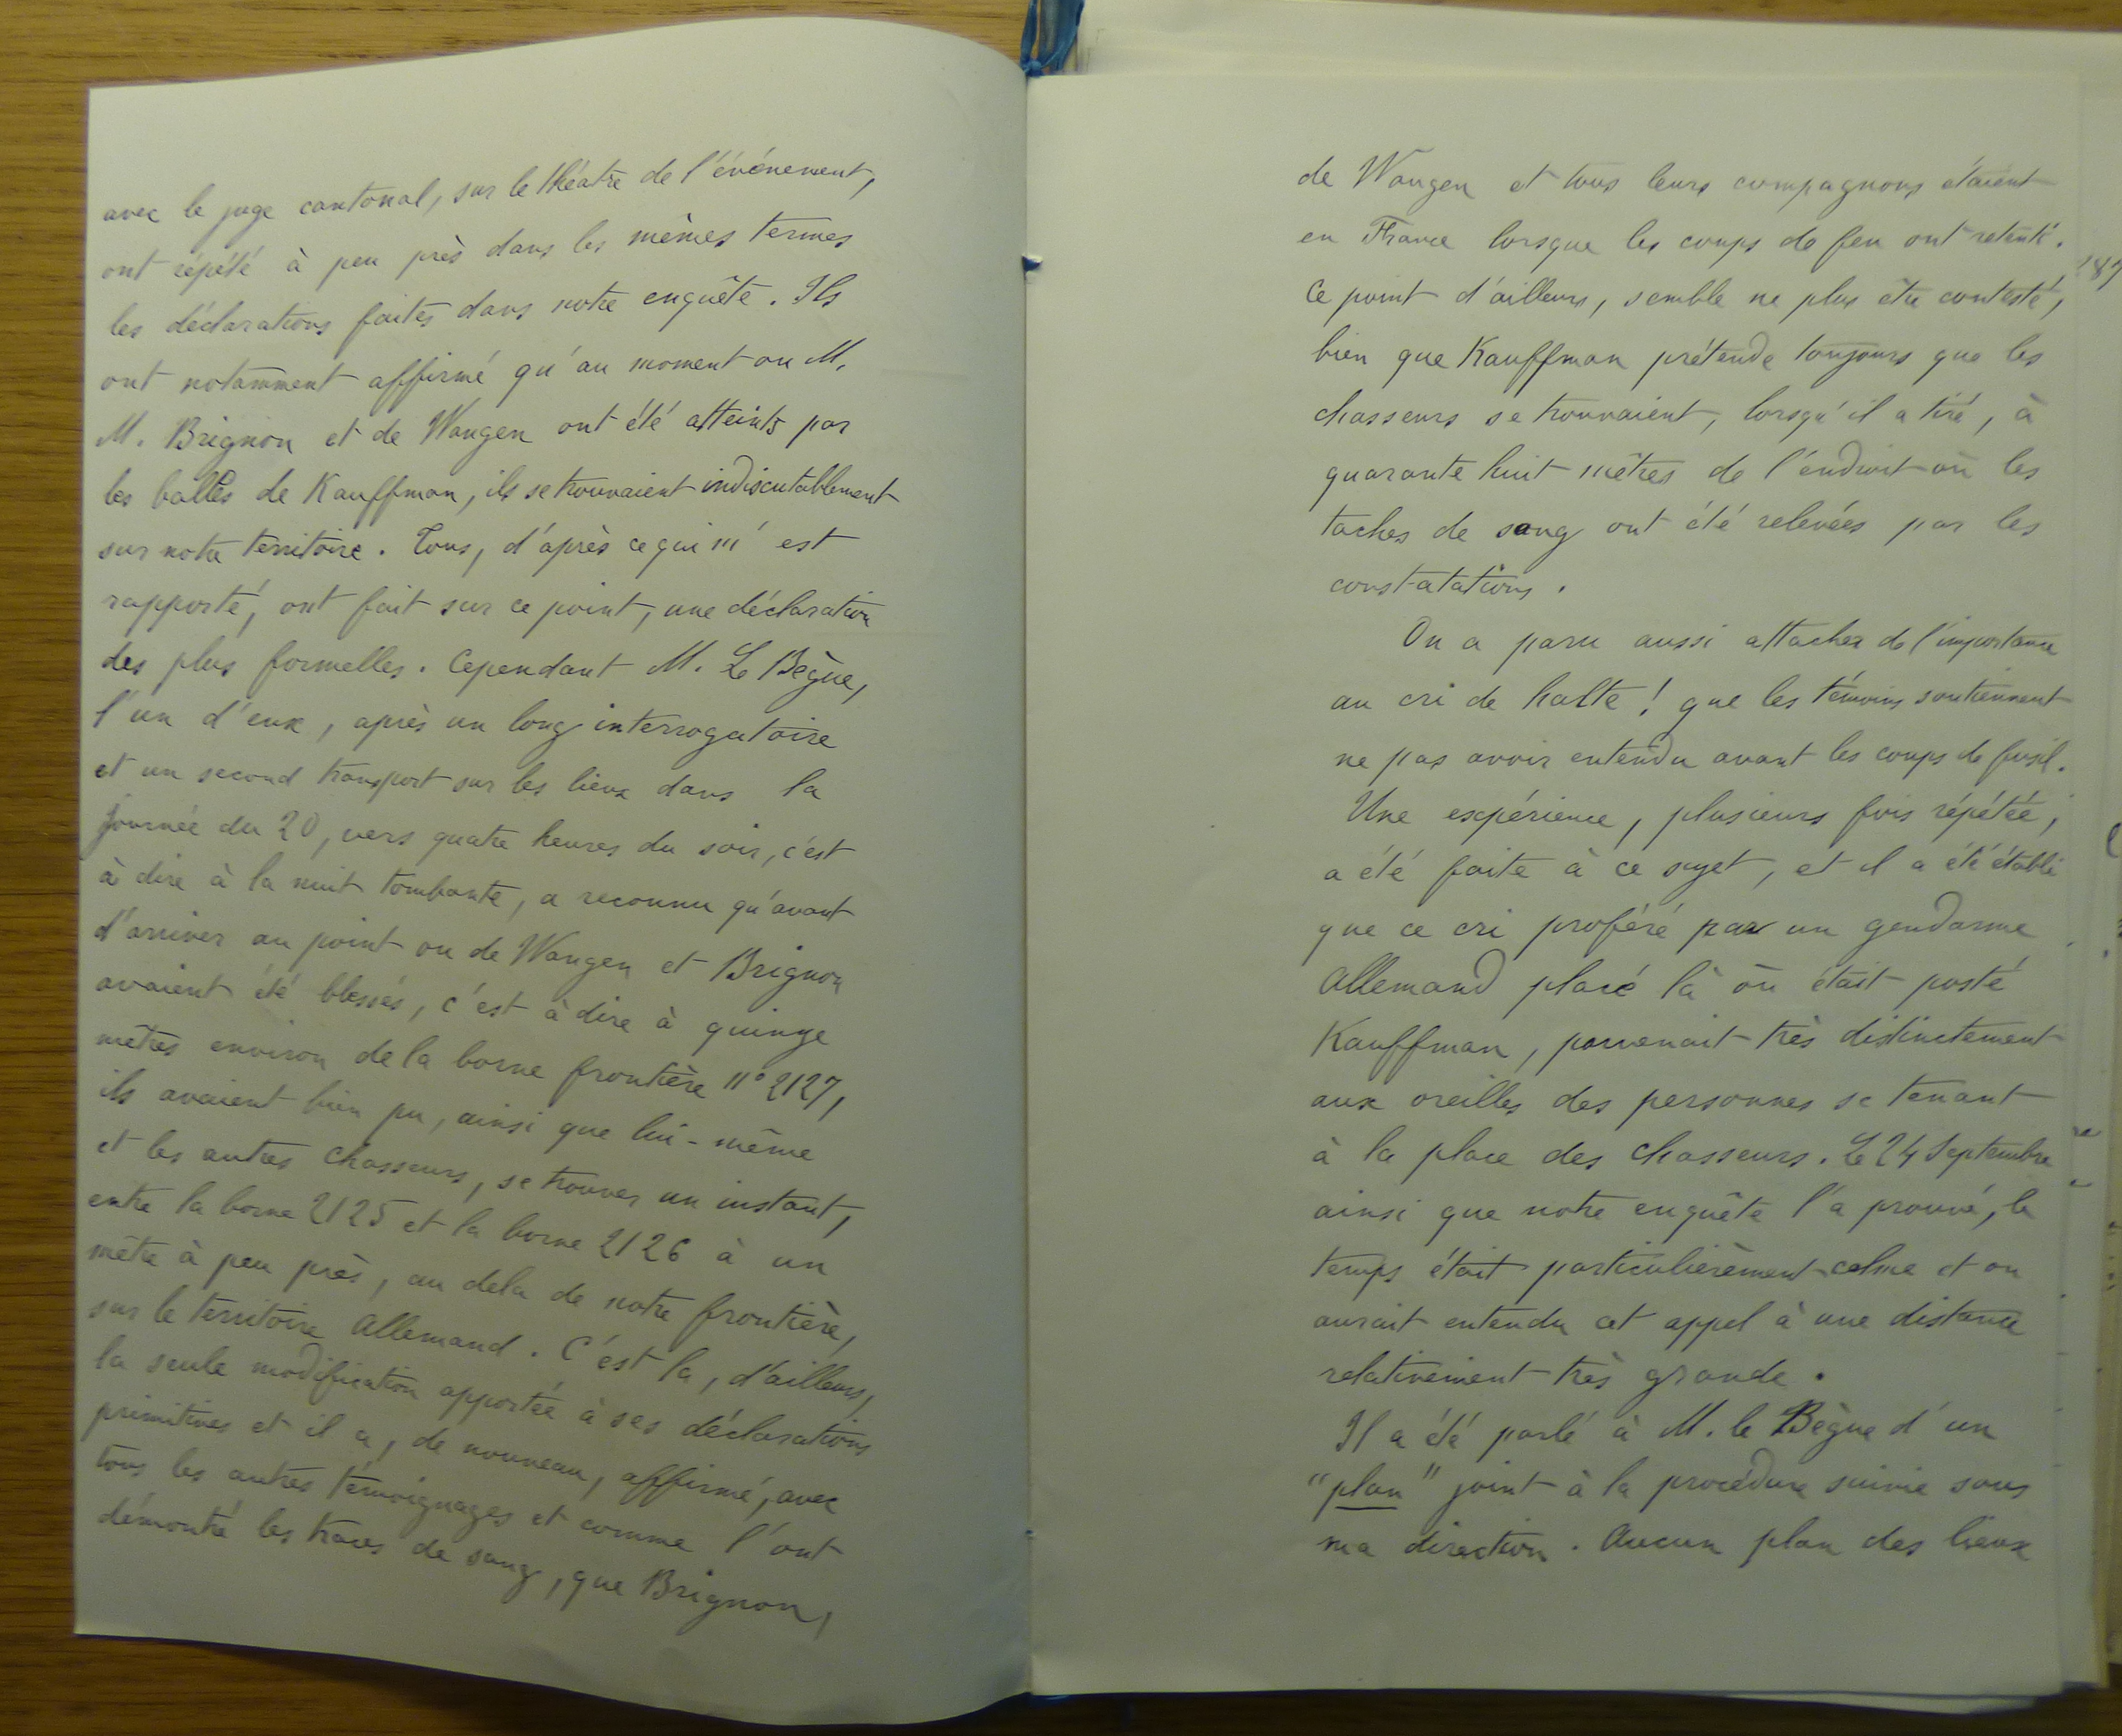 avec le juge cantonal, sur le théatre de l'événement,
ont répété à peu près dans les mèmes termes
les déclarations faites dans notre enquête. Ils
ont notamment affirmé qu'au moment ou M.
M. Brignon et de Wangen ont été atteints par
les balles de Kauffman, ils se trouvaient indiscutablement
sur notre territoire. Tous, d'après ce qui m'est
rapporté, ont fait sur ce point, une déclaration
des plus formelles. Cependant M. Le Bègue,
l'un d'eux, après un long interrogatoire
et un second transport sur les lieux dans la
journée du 20, vers quatre heures du soir, c'est
à dire à la nuit tombante, a reconnu qu'avant
d'arriver au point ou de Wangen et Brignon
avaient été blessés, c'est à dire à quinze
mètres environ de la borne frontière n° 2127,
ils avaient bien pu, ainsi que lui-même
et les autres chasseurs, se trouver un instant,
entre la borne 2125 et la borne 2126 à un
mètre à peu près, au dela de notre frontière,
sur le territoire Allemand. C'est la, d'ailleurs,
la seule modification apportée à ses déclarations
primitives et il a, de nouveau, affirmé, avec
tous les autres témoignages et comme l'ont
démontré les traces de sang, que Brignon,
de Wangen et tous leurs compagnons étaient
en France lorsque les coups de feu ont retenti.
Ce point d'ailleurs, semble ne plus être contesté,
bien que Kauffman prétende toujours que les
chasseurs se trouvaient, lorsqu'il a tiré, à
quarante huit mètres de l'endroit où les
taches de sang ont été relevées par les
constatations.
On a paru aussi attacher de l'importance
au cri de halte! que les témoins soutiennent
ne pas avoir entendu avant les coups de fusil.
Une expérience, plusieurs fois répétée,
a été faite à ce sujet, et il a été établi
que ce cri proféré par un gendarme
Allemand placé là où était posté
Kauffman, parvenait très distinctement
aux oreilles des personnes se tenant
à la place des chasseurs. Le 24 Septembre
ainsi que notre enquête l'a prouvé, le
temps était particulièrement calme et on
aurait entendu cet appel à une distance
relativement très grande.
Il a été parlé à M. le Bègue d'un
"plan" joint à la procédure suivie sous
ma direction. Aucun plan des lieux